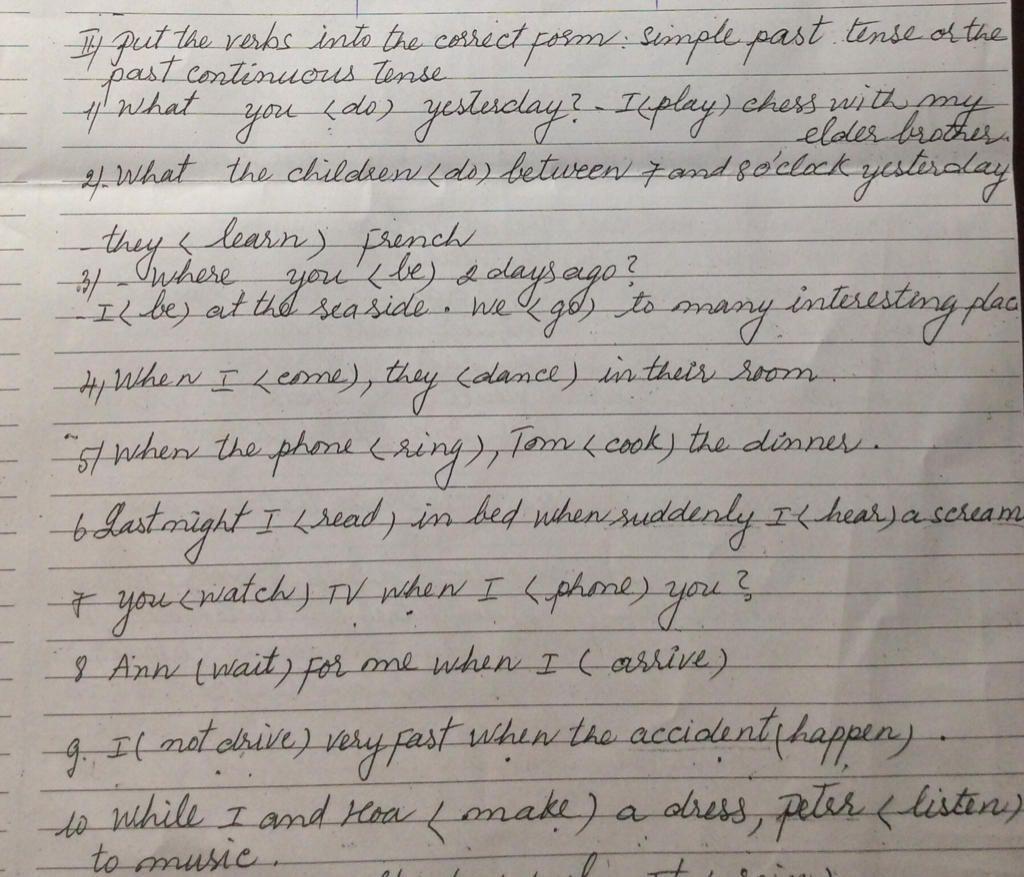 II) put the verbs into the correct form: simple past tense or the
past continuous tense
1) What you (do) yesterday? - I (play) chess with my
elder brother.
2). What the children (do) between 7 and 8 o'clock yesterday
- they (learn) French
3) - Where you (be) 2 days ago?
- I (be) at the seaside. We (go) to many interesting plac
4, When I (come), they (dance) in their room.
5) When the phone (ring), Tom (cook) the dinner.
6 Last night I (read) in bed when suddenly I (hear) a scream
7 you (watch) TV when I (phone) you?
8 Ann (wait) for me when I (arrive)
9. I (not drive) very fast when the accident (happen).
10 While I and Hoa (make) a dress, peter (listen)
to music.